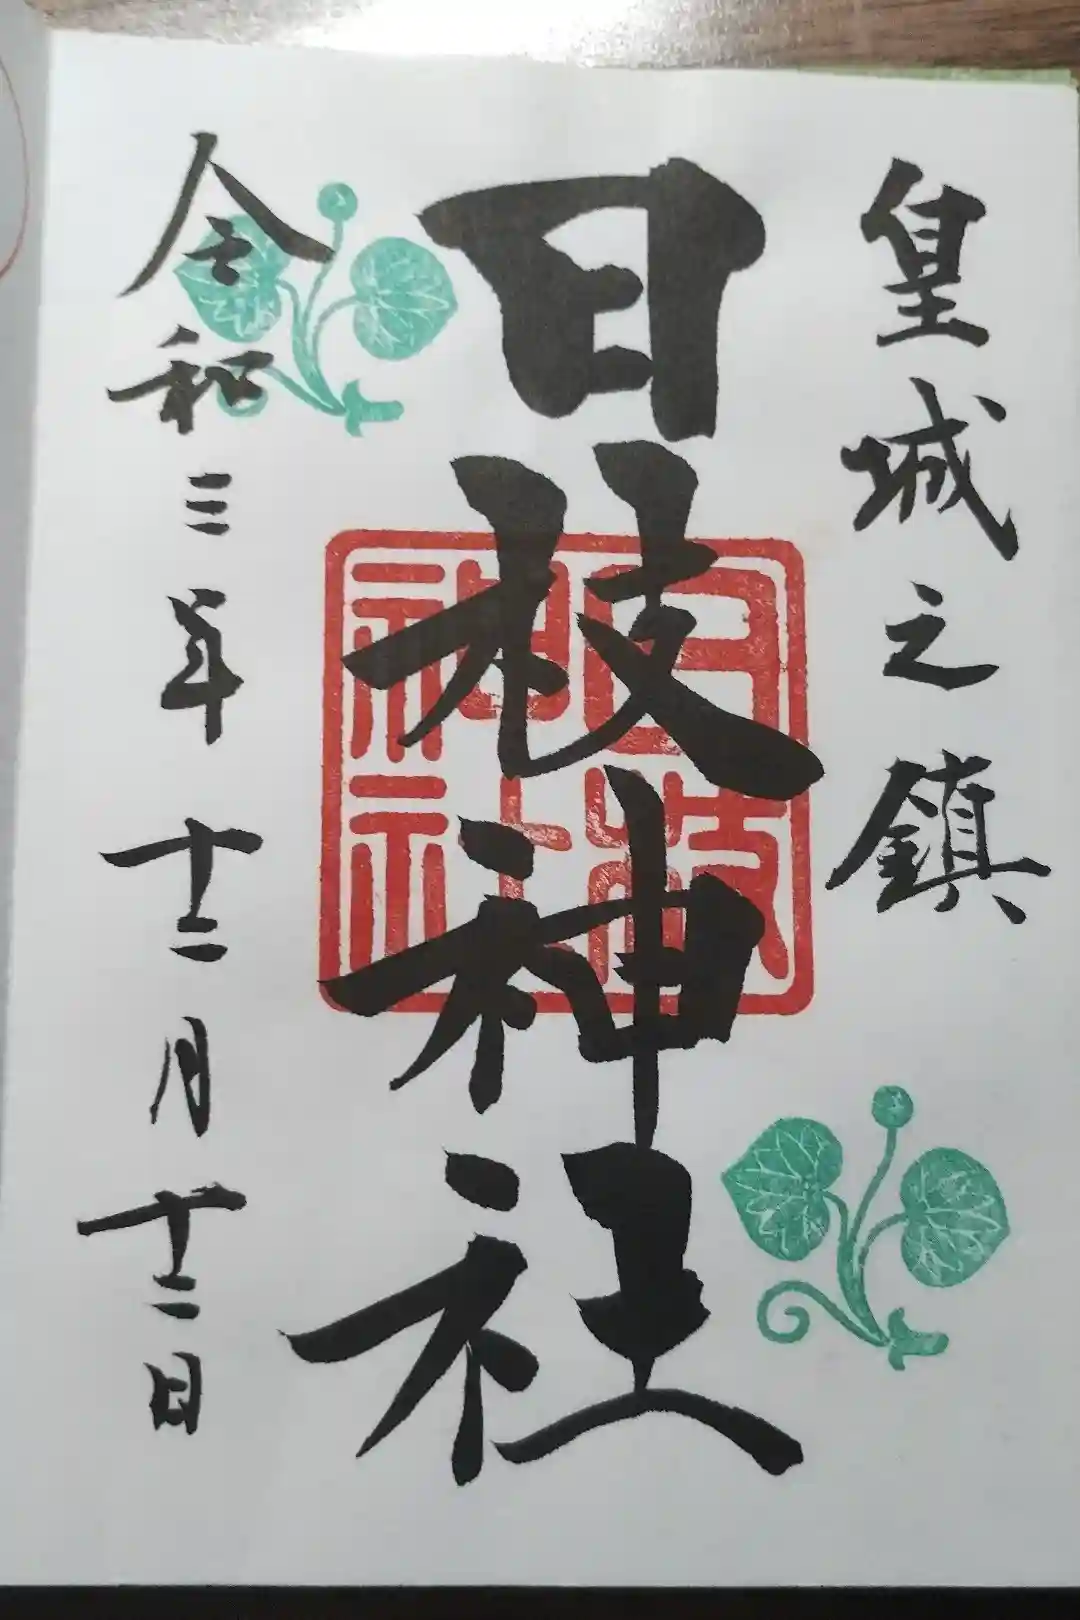 皇城之鎮
日枝神社
日枝神社
令和三年十二月廿二日